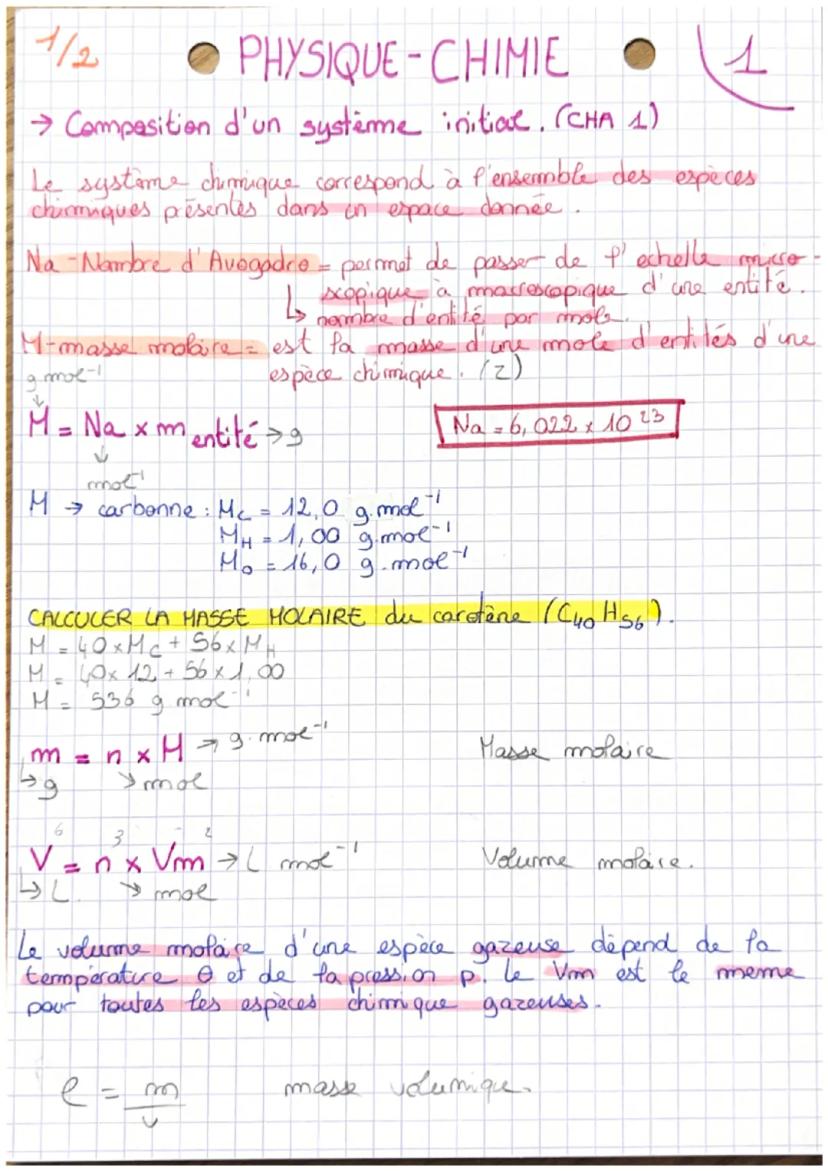 1/2
PHYSIQUE-CHIMIE
1
→ Composition d'un système initial. (CHA 1)
Le système chimique correspond à l'ensemble des espèces
chimiques présentes dans un espace donnée.
Na - Nombre d'Avogadro = permet de passer de l'echelle micro-
scopique à macroscopique d'une entité.
↳ nombre d'entité par mole.
M - masse molaire = est la masse d'une mole d'entités d'une
espèce chimique. (Z)
g.mol⁻¹
M = Na × m entité → g
Na = 6,022 × 10²³
mol⁻¹
M → carbonne : Mc = 12,0 g.mol⁻¹
MH = 1,00 g.mol⁻¹
Mo = 16,0 g.mol⁻¹
CALCULER LA MASSE MOLAIRE du carotène (C40 H56).
M = 40×Mc + 56×MH
M = 40×12 + 56×1,00
M = 536 g mol⁻¹
m = n × M → g.mol⁻¹ Masse molaire
↳ g ↘ mol
6 3 2
V = n × Vm → L mol⁻¹ Volume molaire.
↳ L. ↘ mol
Le volume molaire d'une espèce gazeuse dépend de la
température θ et de la pression p. le Vm est le meme
pour toutes les espèces chimique gazeuses.
ρ = m masse volumique.
v